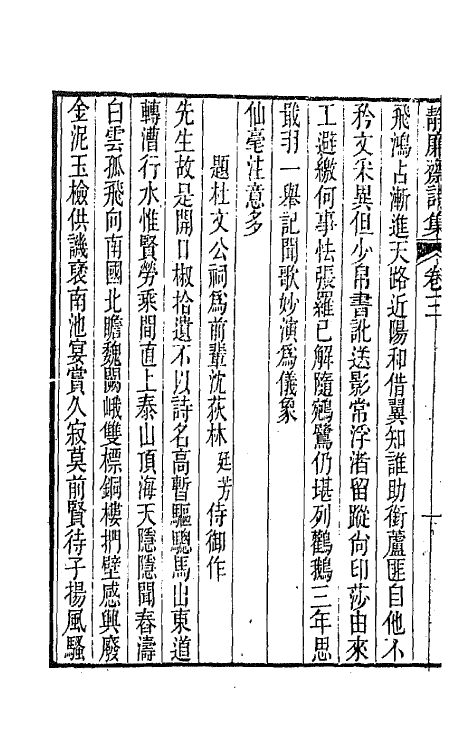 靜廉齋詩集 卷三
飛鴻占漸進天路近陽和借翼知誰助銜蘆匪自他不
矜文采異但少帛書訛送影常浮渚留蹤尙印莎由來
工避繳何事怯張羅已解隨鵷鷺仍堪列鸛鵝三年思
戢羽一舉記聞歌妙演爲儀象
仙毫注意多
題杜文公祠爲前輩沈荻林廷芳侍御作
先生故是開口椒拾遺不以詩名高暫驅驄馬山東道
轉漕行水惟賢勞乘間直上泰山頂海天隱隱聞春濤
白雲孤飛向南國北瞻魏闕峨雙標銅樓捫壁感興廢
金泥玉檢供譏褒南池宴賞久寂莫前賢待子揚風騷